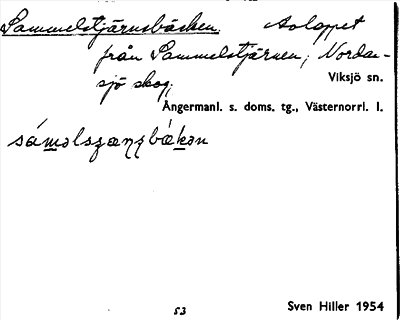 Sammelstjärnsbäcken. Avloppet
från Sammelstjärnen, Nordan-
sjö skog,
Viksjö sn.
Ångermanl. s. doms. tg., Västernorrl. l.
53
Sven Hiller 1954